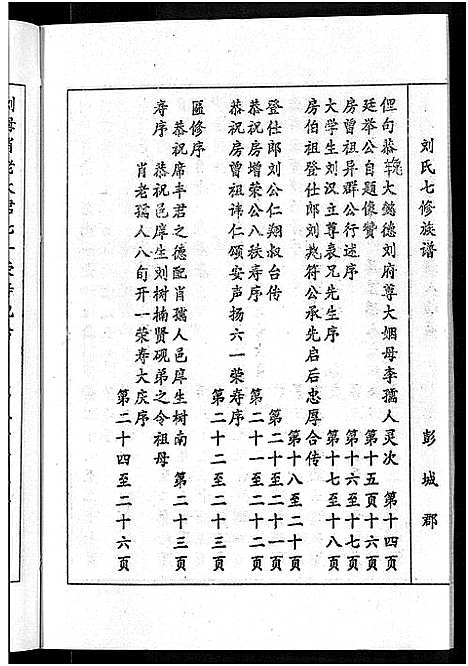 刘氏七修族谱 彭城郡
但句恭挽大懿德刘府尊大姻母李孺人灵次 第十四页
廷举公自题像赞 第十五页十六页
房曾祖异群公行述序 第十六至十七页
大学生刘汉立尊衷兄先生序 第十七至十八页
房伯祖登仕郎刘尭符公承先启后忠厚合传 第十八至二十页
登仕郎刘公仁翔叔台传 第二十至二十一页
恭祝房增荣公八秩寿序 第二十一至二十二页
恭祝房曾祖讳仁颂安声扬六一荣寿序 第二十二至二十三页
匾修序
恭祝席丰君之德配肖孺人邑庠生树南 第二十三页
寿序 恭祝邑庠生刘树楠贤砚弟之令祖母
肖老孺人八旬开一荣寿大庆序 第二十四至二十六页